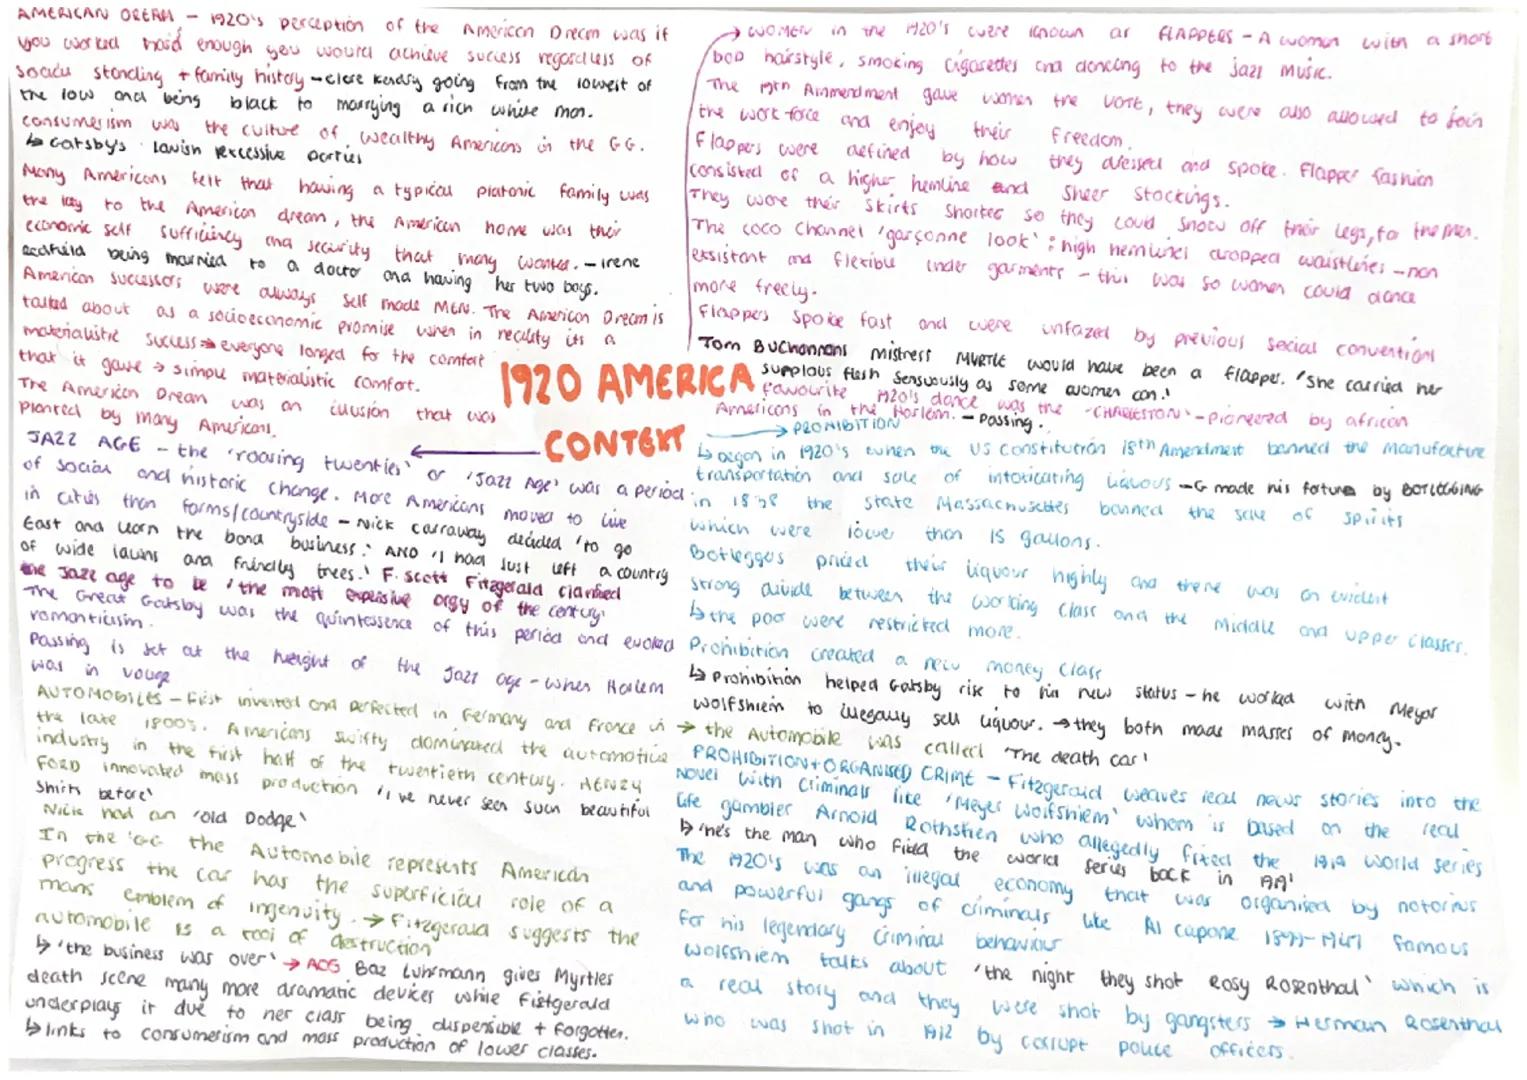 AMERICAN DREAM – 1920's perception of the American Dream was if
you worked hard enough you would achieve success regardless of
social standing + family history – clare kendry going from the lowest of
the low and being black to marrying a rich white man.
consumerism was the culture of wealthy Americans in the GG.
↳ Gatsby's lavish excessive parties
Many Americans felt that having a typical platonic family was
the key to the American dream, the American home was their
economic self sufficiency and security that many wanted. – irene
redfield being married to a doctor and having her two boys.
American successors were always self made MEN. The American Dream is
talked about as a socioeconomic promise when in reality its a
materialistic success → everyone longed for the comfort
that it gave → simple materialistic comfort.
The American Dream was an illusion that was
planted by many Americans.
1920 AMERICA
CONTEXT
JAZZ AGE – the 'roaring twenties' or 'Jazz Age' was a period
of social and historic change. More Americans moved to live
in cities than farms/countryside – Nick carraway decided 'to go
East and learn the bond business.' AND 'I had just left a country
of wide lawns and friendly trees.' F. Scott Fitzgerald claimed
the Jazz age to be 'the most expensive orgy of the century'
The Great Gatsby was the quintessence of this period and evoked
romanticism.
Passing is set at the height of the Jazz age – when Harlem
was in vouge
AUTOMOBILES – First invented and perfected in Germany and France in
the late 1800s. Americans swifty dominated the automotive
industry in the first half of the twentieth century. HENRY
FORD innovated mass production 'I've never seen such beautiful
shirts before'
Nick had an 'old Dodge'
In the 'GG' the Automobile represents American
progress the car has the superficial role of a
mans emblem of ingenuity. → Fitzgerald suggests the
automobile is a tool of destruction
↳ 'the business was over' → AO5 Baz Luhrmann gives Myrtles
death scene many more dramatic devices while Fistgerald
underplays it due to her class being dispensible + forgotten.
↳ links to consumerism and mass production of lower classes.
→ WOMEN in the 1920's were known as FLAPPERS – A woman with a short
bob hairstyle, smoking cigarettes and dancing to the jazz music.
The 19th Ammendment gave women the vote, they were also allowed to join
the work force and enjoy their freedom.
Flappers were defined by how they dressed and spoke. Flapper fashion
consisted of a higher hemline and sheer stockings.
They wore their skirts shorter so they could show off their legs, for the men.
The coco Channel 'garçonne look': high hemlines dropped waistlines – non
exsistant and flexible under garments – this was so women could dance
more freely.
Flappers spoke fast and were unfazed by previous social conventions
Tom Buchannans mistress MYRTLE would have been a flapper. 'She carried her
supplous flesh sensuously as some women can.'
favourite 1920's dance was the 'CHARLESTON' – pioneered by african
Americans in the Harlem. – Passing.
→ PROHIBITION
↳ began in 1920's when the US Constitution 18th Amendment banned the manufacture
transportation and sale of intoxicating liquous – G made his fortune by BOTLEGGING
in 1838 the state Massachusettes banned the sale of spirits
which were lower than 15 gallons.
Botleggers priced their liquour highly and there was an evident
strong divide between the working class and the middle and upper classes.
↳ the poor were restricted more.
Prohibition created a new money class
↳ Prohibition helped Gatsby rise to his new status – he worked with Meyer
Wolfshiem to illegally sell liquour. → they both made masses of money.
→ the Automobile was called 'The death car'
PROHIBITION + ORGANISED CRIME – Fitzgerald weaves real news stories into the
Novel with criminals like 'Meyer Wolfshiem' whom is based on the real
life gambler Arnold Rothstien who allegedly fixed the 1919 World series
↳ 'he's the man who fixed the world series back in 1919'
The 1920's was an illegal economy that was organised by notorius
and powerful gangs of criminals like Al capone 1899–1947 famous
for his legendary criminal behaviour
Wolfshiem talks about 'the night they shot Rosy Rosenthal' which is
a real story and they were shot by gangsters → Herman Rosenthal
who was shot in 1912 by corrupt police officers.